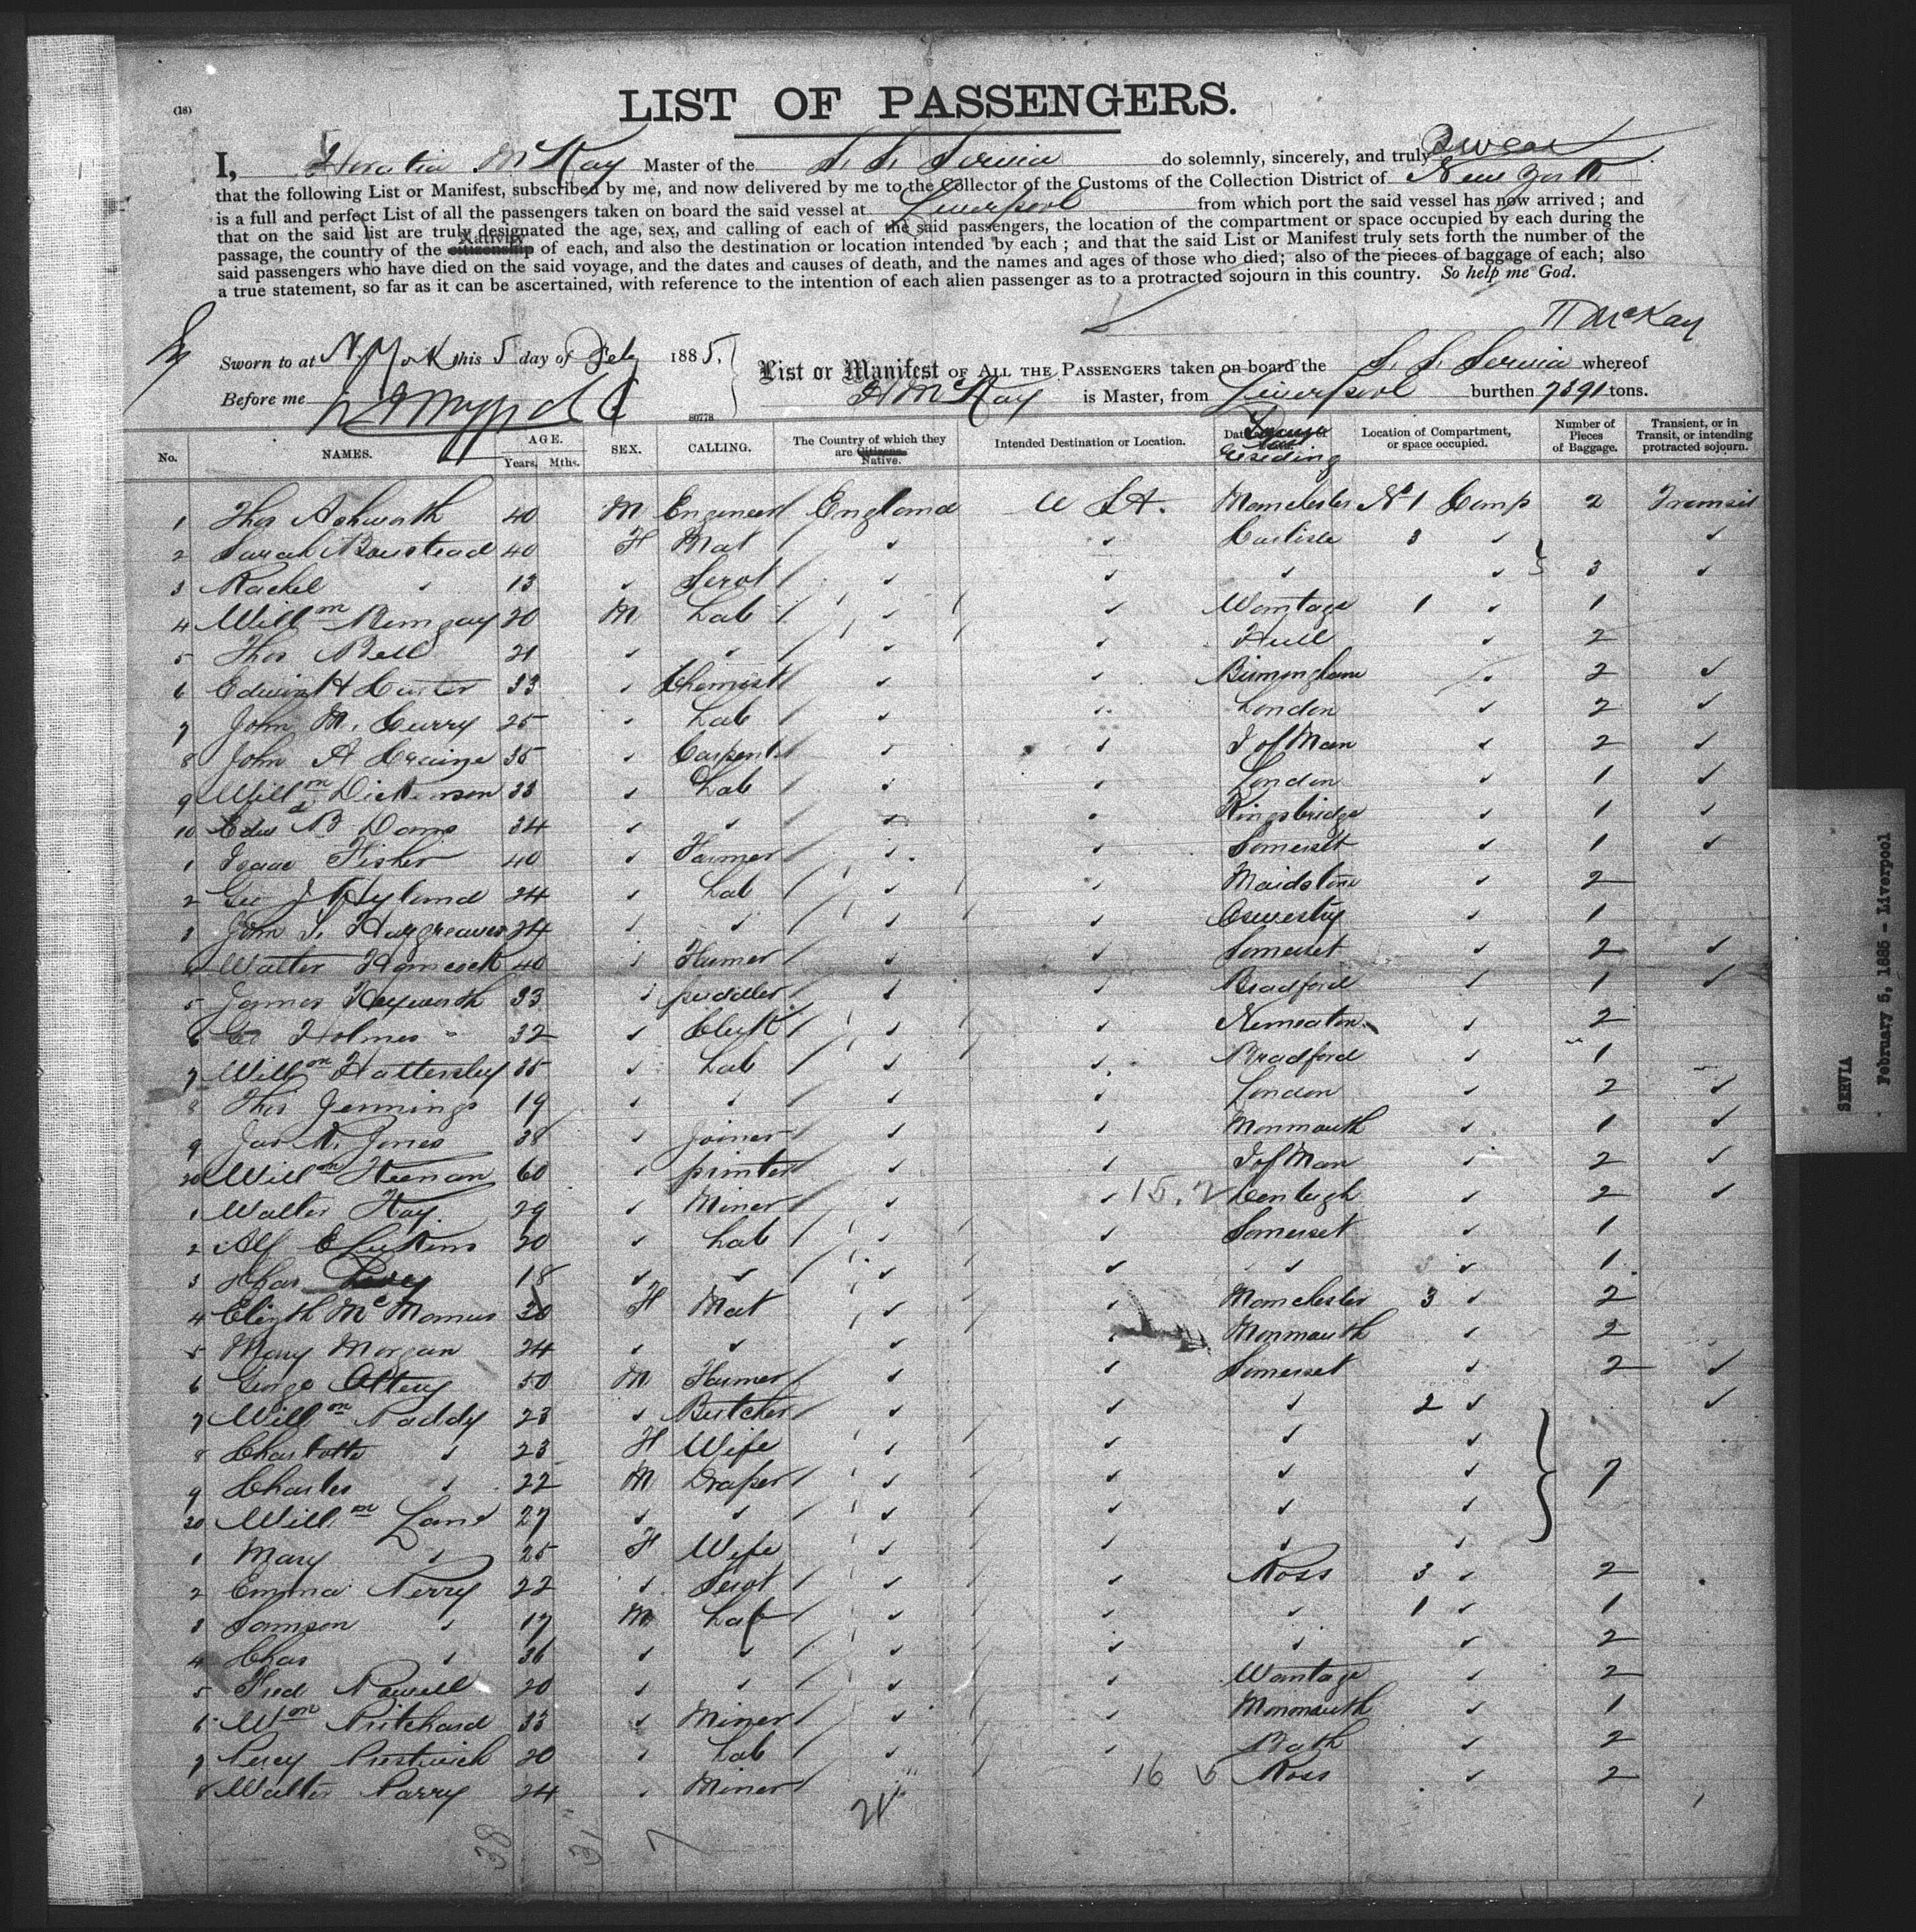 (18)
LIST OF PASSENGERS.
I, Horatio McKay Master of the S. S. Servia do solemnly, sincerely, and truly swear
that the following List or Manifest, subscribed by me, and now delivered by me to the Collector of the Customs of the Collection District of New York
is a full and perfect List of all the passengers taken on board the said vessel at Liverpool from which port the said vessel has now arrived; and
that on the said list are truly designated the age, sex, and calling of each of the said passengers, the location of the compartment or space occupied by each during the
Nativity
passage, the country of the citizenship of each, and also the destination or location intended by each; and that the said List or Manifest truly sets forth the number of the
said passengers who have died on the said voyage, and the dates and causes of death, and the names and ages of those who died; also of the pieces of baggage of each; also
a true statement, so far as it can be ascertained, with reference to the intention of each alien passenger as to a protracted sojourn in this country. So help me God.
H McKay
Sworn to at N. York this 5 day of Feb 1885.
Before me
80778
List or Manifest OF ALL THE PASSENGERS taken on board the S. S. Servia whereof
H McKay is Master, from Liverpool burthen 7391 tons.
No. NAMES. AGE. Years. Mths. SEX. CALLING. The Country of which they are Citizens. Native. Intended Destination or Location. residing Location of Compartment, or space occupied. Number of Pieces of Baggage. Transient, or in Transit, or intending protracted sojourn.
1 Thos Ashworth 40 M Engineer England U S A. Manchester No 1 Comp 2 Transit
2 Sarah Boustead 40 F Mat ✓ ✓ Carlisle 3 ✓ ✓
3 Rachel ✓ 13 ✓ Servt ✓ ✓ ✓ ✓ 3 ✓
4 Willm 20 M Lab ✓ ✓ Wantage 1 ✓ 1
5 Thos Bell 21 ✓ ✓ ✓ ✓ Hull ✓ 2
6 Edwin H Carter 33 ✓ Chemist ✓ ✓ Birmingham ✓ 2 ✓
7 John M. Curry 25 ✓ Lab ✓ London ✓ 2 ✓
8 John A Craine 35 ✓ Carpent ✓ ✓ I of Man ✓ 2 ✓
9 Willm Dickenson 33 ✓ Lab ✓ ✓ London ✓ 1 ✓
10 Edwd B Davis 34 ✓ ✓ ✓ ✓ Kingsbridge ✓ 1 ✓
1 Isaac Fisher 40 ✓ Farmer ✓ ✓ Somerset ✓ 1 ✓
2 Geo J Hyland 24 ✓ Lab ✓ ✓ Maidstone ✓ 2
3 John S. Hargreaves 24 ✓ ✓ ✓ ✓ Oswestry ✓ 1
4 Walter Hancock 40 ✓ Farmer ✓ ✓ Somerset ✓ 2 ✓
5 James Heyworth 33 ✓ puddler ✓ ✓ Bradford ✓ 1 ✓
6 Geo Holmes 32 ✓ Clerk ✓ ✓ Nuneaton ✓ 2
7 Willm Hattersley 35 ✓ Lab ✓ ✓ Bradford ✓ 1
8 Thos Jennings 19 ✓ ✓ ✓ ✓ London ✓ 2 ✓
9 Jas R. Jones 38 ✓ Joiner ✓ ✓ Monmouth ✓ 1 ✓
20 Willm Keenan 60 ✓ printer ✓ ✓ I of Man ✓ 2 ✓
1 Walter Kay. 29 ✓ Miner ✓ ✓ 15.2 Denbigh ✓ 2 ✓
2 Alf E Lukins 20 ✓ Lab ✓ ✓ Somerset ✓ 1
3 Chas 18 ✓ ✓ ✓ ✓ ✓ ✓ 1
4 Elizth McManus 30 F Mat ✓ ✓ Manchester 3 ✓ 2
5 Mary Morgan 24 ✓ ✓ ✓ ✓ Monmouth ✓ 2
6 George Ottery 50 M Farmer ✓ ✓ Somerset ✓ 2 ✓
7 Willm Paddy 23 ✓ Butcher ✓ ✓ ✓ 2 ✓ ✓
8 Charlotte ✓ 23 F Wife ✓ ✓ ✓ ✓
9 Charles ✓ 22 M Draper ✓ ✓ ✓ ✓ 7
30 Willm Lane 27 ✓ ✓ ✓ ✓ ✓ ✓
1 Mary ✓ 25 F Wife ✓ ✓ ✓ ✓
2 Emma Perry 22 ✓ Servt ✓ ✓ Ross 3 ✓ 2
3 Samson ✓ 17 M Lab ✓ ✓ ✓ 1 ✓ 1
4 Chas ✓ 36 ✓ ✓ ✓ ✓ ✓ ✓ 2
5 Fred Powell 20 ✓ ✓ ✓ ✓ Wantage ✓ 2
6 Wm Pritchard 33 ✓ Miner ✓ ✓ Monmouth ✓ 1
7 Percy Prestwich 20 ✓ Lab ✓ ✓ Bath ✓ 2
8 Walter Parry 24 ✓ Miner 16 Ross ✓ 2
38 31 7 21
SERVIA
February 5, 1885 - Liverpool